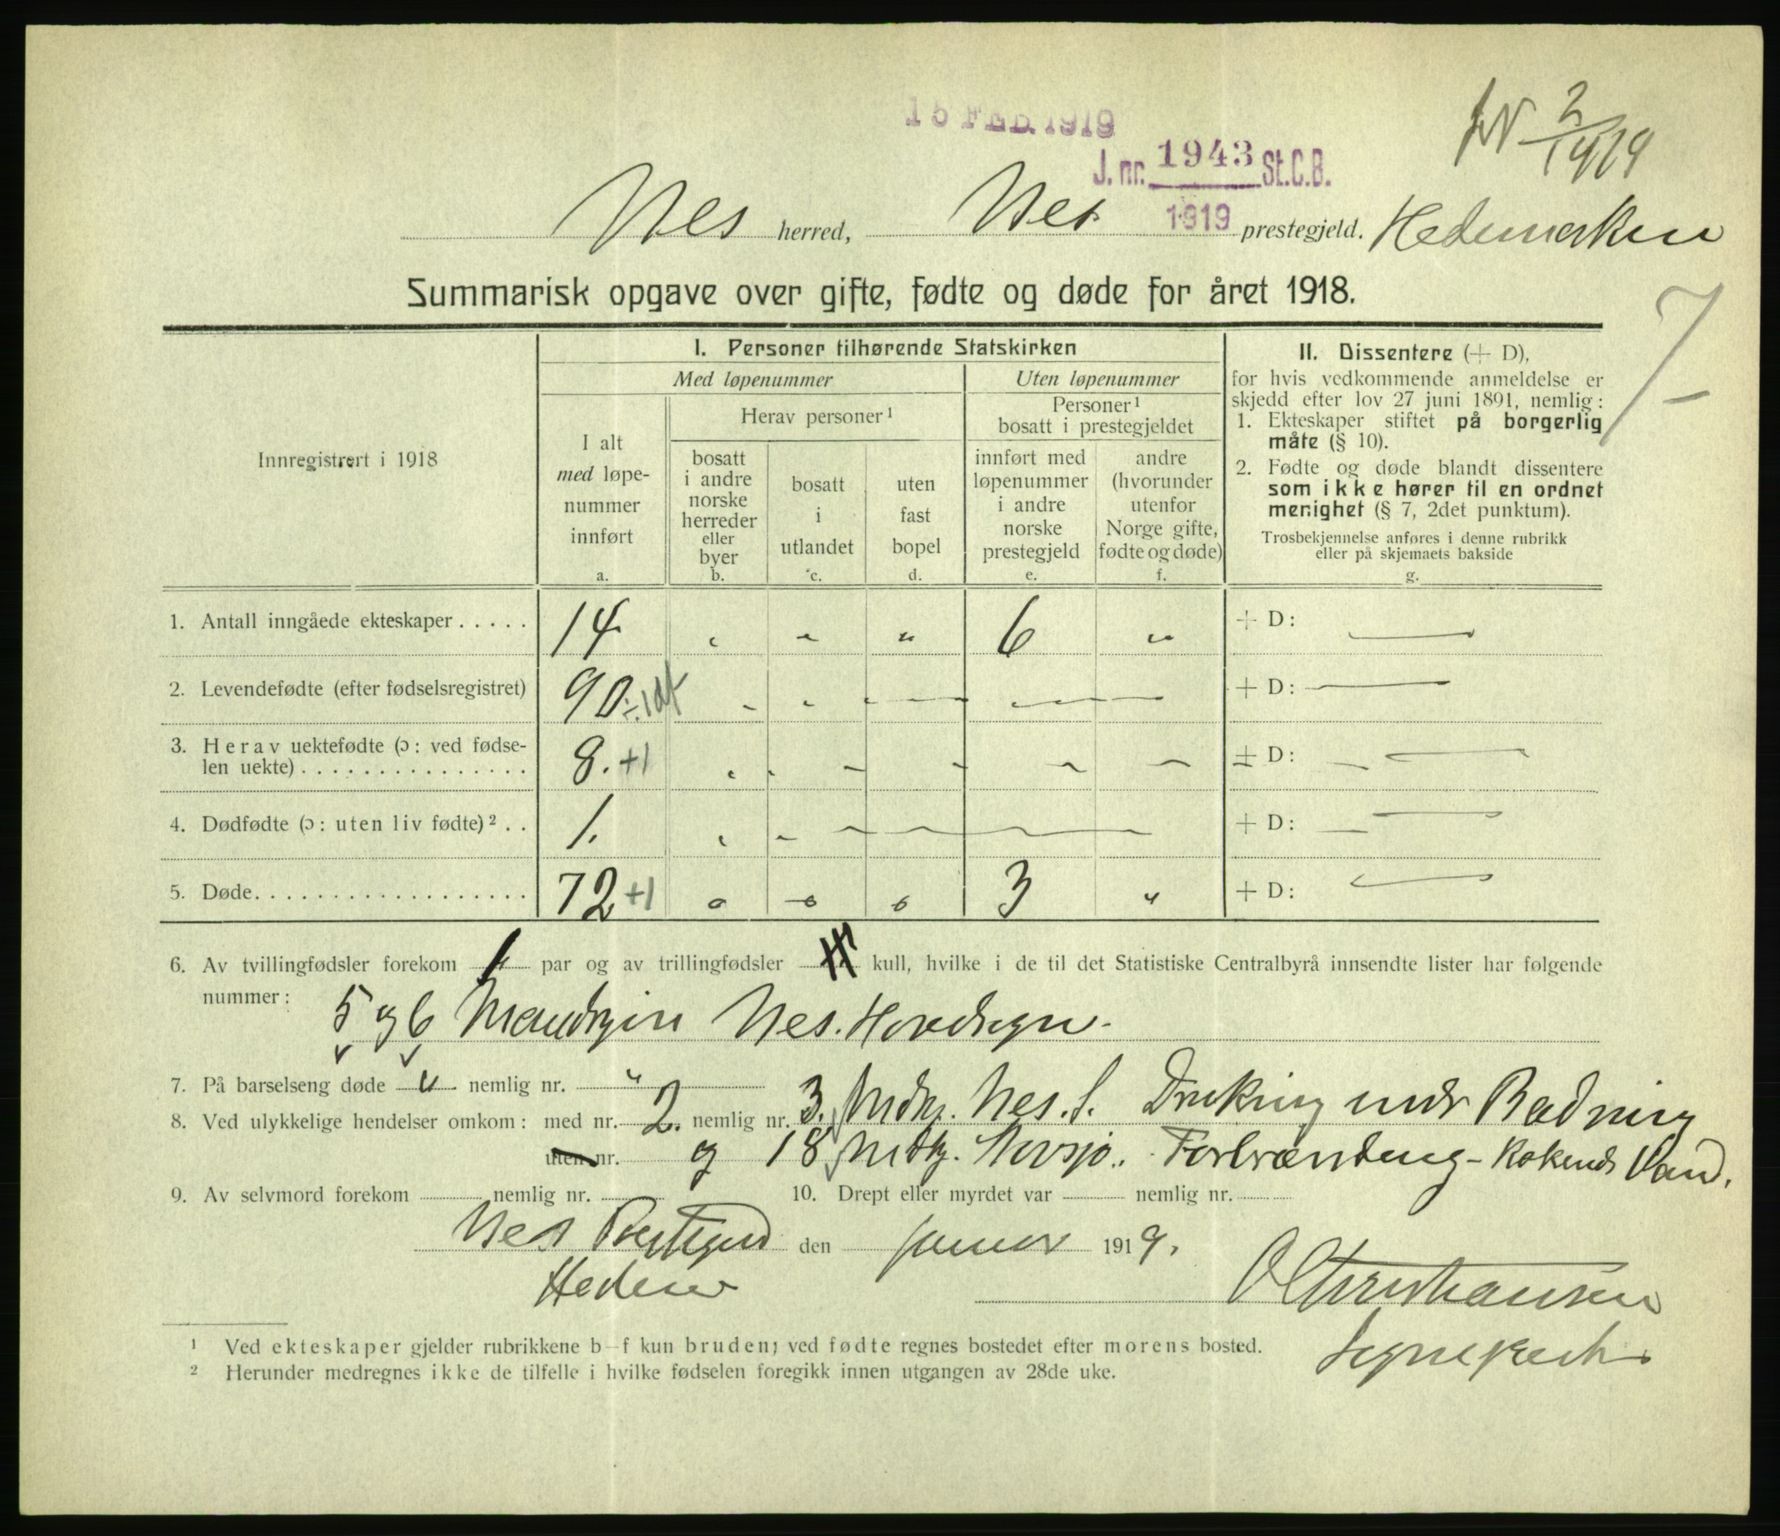 15 FEB. 1919
J. nr. 1943 St.C.B.
1919
JN 2/1919
Nes herred, Nes prestegjeld. Hedemarken
Summarisk opgave over gifte, fødte og døde for året 1918.
7
Innregistrert i 1918
I. Personer tilhørende Statskirken
Med løpenummer
Uten løpenummer
I alt
med løpe-
nummer
innført
a.
Herav personer ¹
bosatt
i andre
norske
herreder
eller
byer
b.
bosatt
i
utlandet
c.
uten
fast
bopel
d.
Personer ¹
bosatt i prestegjeldet
innført med
løpenummer
i andre
norske
prestegjeld
e.
andre
(hvorunder
utenfor
Norge gifte,
fødte og døde)
f.
II. Dissentere (+ D),
for hvis vedkommende anmeldelse er
skjedd efter lov 27 juni 1891, nemlig:
1. Ekteskaper stiftet på borgerlig
måte (§ 10).
2. Fødte og døde blandt dissentere
som ikke hører til en ordnet
menighet (§ 7, 2det punktum).
Trosbekjennelse anføres i denne rubrikk
eller på skjemaets bakside
g.
1. Antall inngåede ekteskaper . . . . . 14 „ „ „ 6 „ + D: —
2. Levendefødte (efter fødselsregistret) 90 ÷ 1 df - - - - - + D: —
3. Herav uektefødte (ɔ: ved fødse-
len uekte) . . . . . . . . . . . . . . . 8. +1 - - - - - + D: —
4. Dødfødte (ɔ: uten liv fødte) ² . . 1. - - - - - + D: —
5. Døde. . . . . . . . . . . . . . . . . . 72 +1 „ „ „ 3 „ + D: —
6. Av tvillingfødsler forekom 1 par og av trillingfødsler kull, hvilke i de til det Statistiske Centralbyrå innsendte lister har følgende
nummer: 5 og 6 Mandkjøn Nes. Hovedsogn.
7. På barselseng døde „ nemlig nr. „
8. Ved ulykkelige hendelser omkom: med nr. 2. nemlig nr. 3. Mdkj. Nes. S. Drukning under Badning
uten nr. og 18 Mdkj. Stavsjø. Forbrænding - kokende Vand.
9. Av selvmord forekom nemlig nr. 10. Drept eller myrdet var nemlig nr.
Nes Prestegjeld den januar 1919.
Hedem
O Christiansen
Sogneprest
¹ Ved ekteskaper gjelder rubrikkene b—f kun bruden; ved fødte regnes bostedet efter morens bosted.
² Herunder medregnes ikke de tilfelle i hvilke fødselen foregikk innen utgangen av 28de uke.